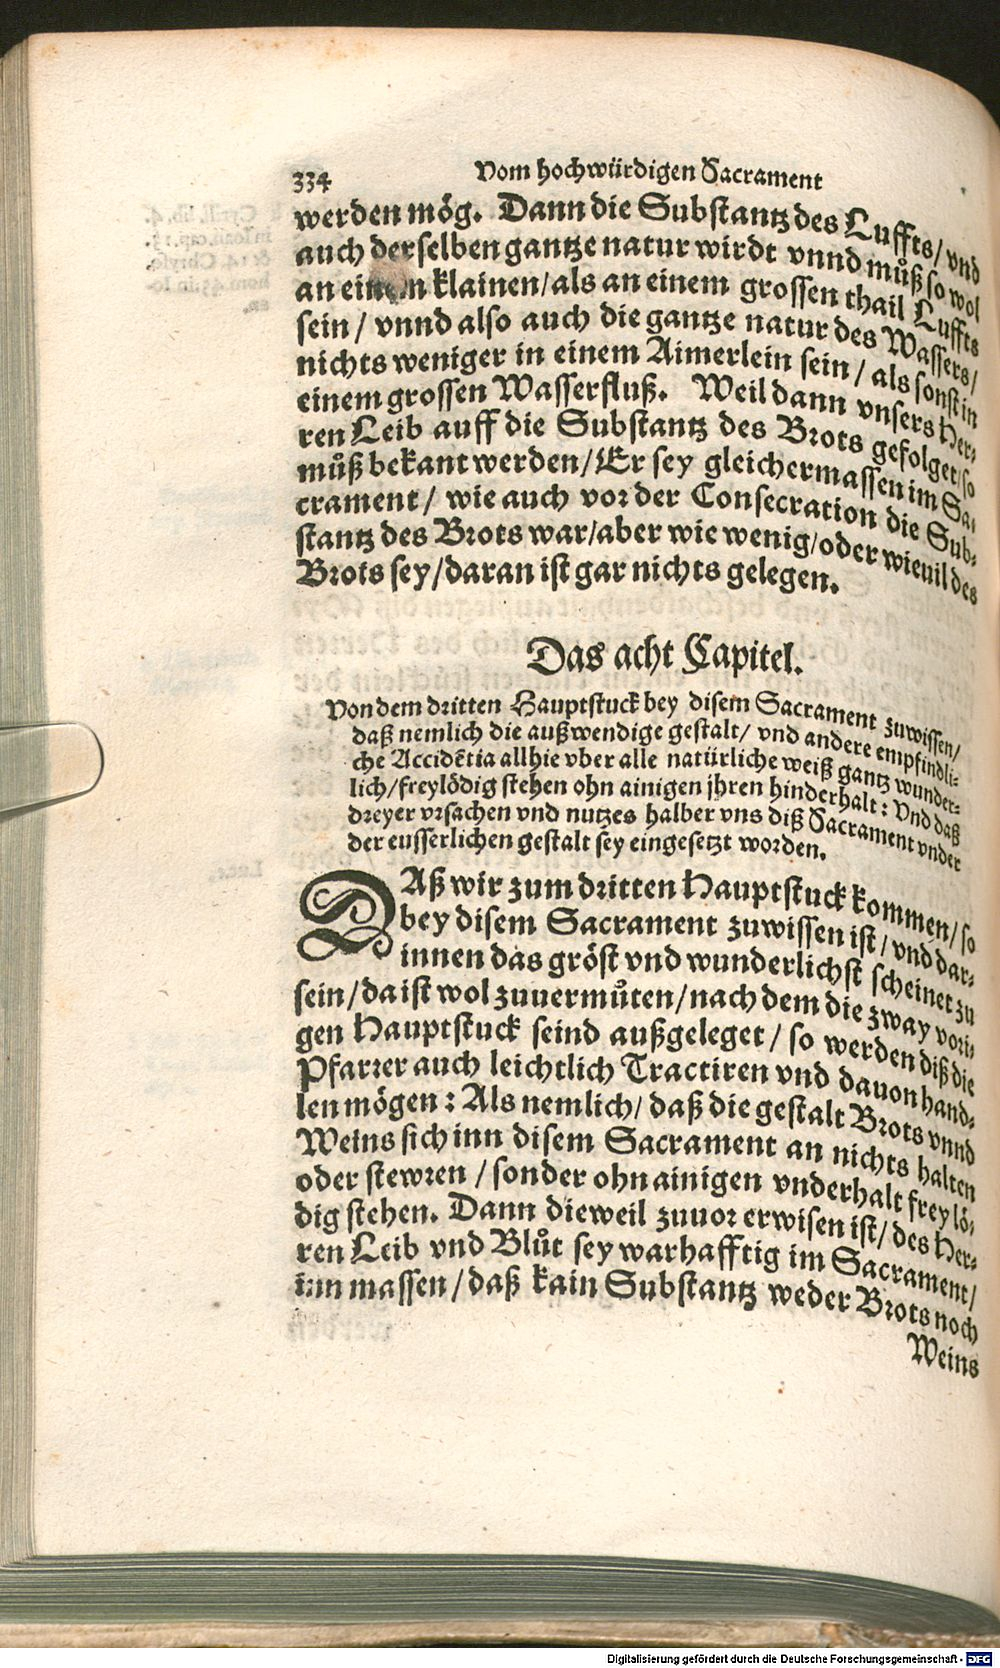 334 Vom hochwürdigen Sacrament
werden mög. Dann die Substantz des Luffts/ vnd
auch derselben gantze natur wirdt vnnd můß so wol
an einem klainen/ als an einem grossen thail Luffts
sein/ vnnd also auch die gantze natur des Wassers/
nichts weniger in einem Aimerlein sein/ als sonst in
einem grossen Wasserfluß. Weil dann vnsers Her-
ren Leib auff die Substantz des Brots gefolget/ so
můß bekant werden/ Er sey gleichermassen im Sa-
crament/ wie auch vor der Consecration die Sub-
stantz des Brots war/ aber wie wenig/ oder wieuil des
Brots sey/ daran ist gar nichts gelegen.
Das acht Capitel.
Von dem dritten Hauptstuck bey disem Sacrament zuwissen/
daß nemlich die außwendige gestalt/ vnd andere empfindli-
che Accidētia allhie vber alle natürliche weiß gantz wunder-
lich/ freylödig stehen ohn ainigen jhren hinderhalt: Vnd daß
dreyer vrsachen vnd nutzes halber vns diß Sacrament vnder
der eusserlichen gestalt sey eingesetzt worden.
DAß wir zum dritten Hauptstuck kommen/ so
bey disem Sacrament zuwissen ist/ vnd dar-
innen das gröst vnd wunderlichst scheinet zu
sein/ da ist wol zuuermůten/ nach dem die zway vori-
gen Hauptstuck seind außgeleget/ so werden diß die
Pfarrer auch leichtlich Tractiren vnd dauon hand-
len mögen: Als nemlich/ daß die gestalt Brots vnnd
Weins sich inn disem Sacrament an nichts halten
oder stewren/ sonder ohn ainigen vnderhalt freylö-
dig stehen. Dann dieweil zuuor erwisen ist/ des Her-
ren Leib vnd Blůt sey warhafftig im Sacrament/
inn massen/ daß kain Substantz weder Brots noch
Weins
Digitalisierung gefördert durch die Deutsche Forschungsgemeinschaft - DFG